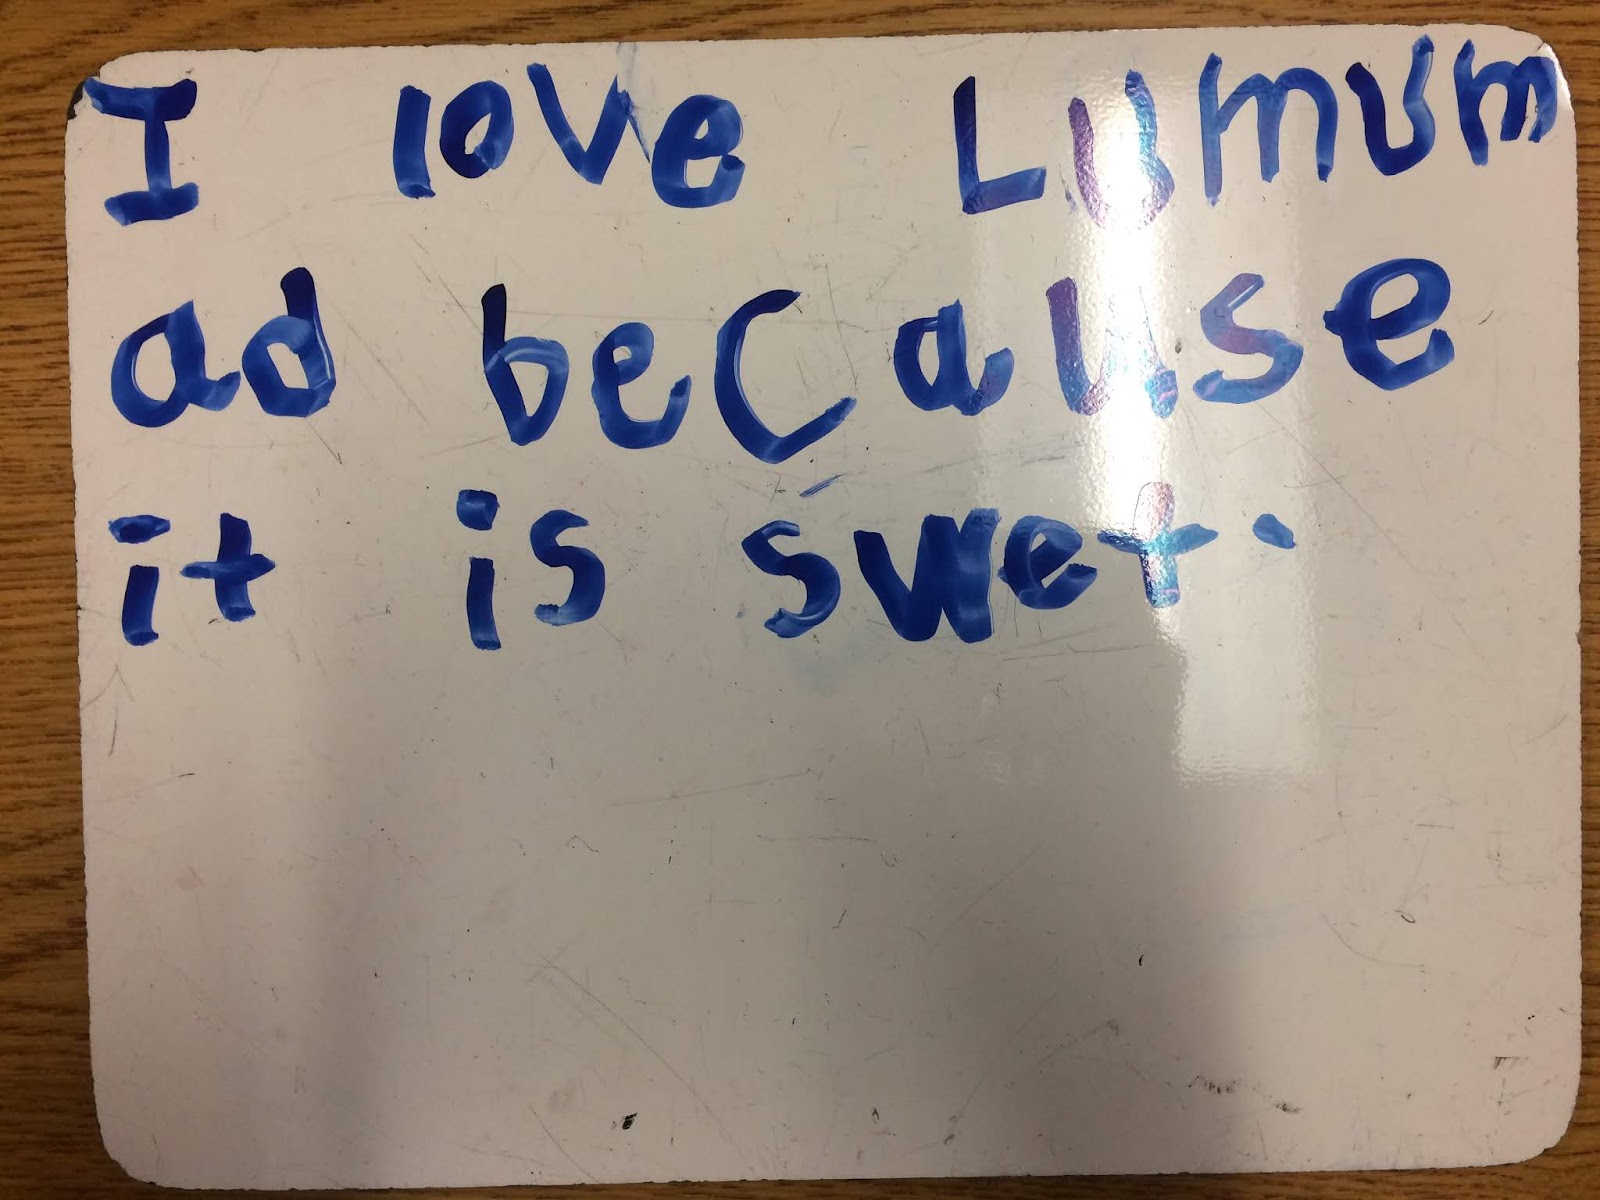 I love Lumum
ad because
it is swet.